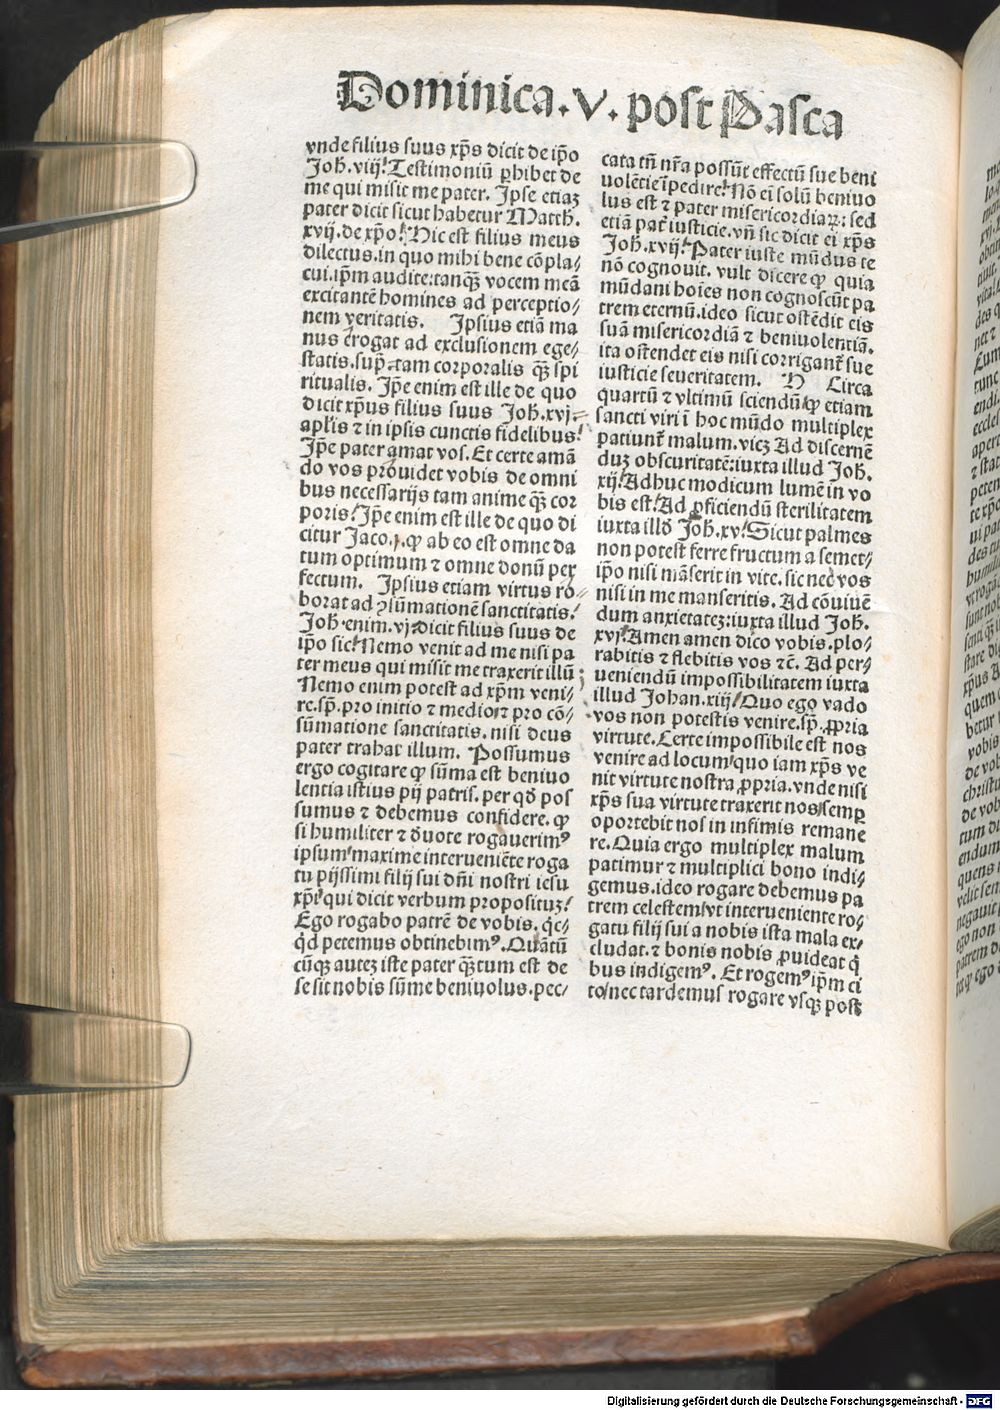 Dominica.V. post Pasca
vnde filius suus xp̄s dicit de ip̄o
Joh̄. viij. Testimoniū ꝑhibet de
me qui misit me pater. Ipse etiaꝫ
pater dicit sicut habetur Matth̄.
xvij. de xp̄o. Hic est filius meus
dilectus.in quo mihi bene cōpla⸗
cui.ip̄m audite:tanqꝫ vocem meā
excitantē homines ad perceptio⸗
nem veritatis. Ipsius etiā ma
nus erogat ad exclusionem ege⸗
statis. tam corporalis qꝫ spi
ritualis. Ip̄e enim est ille de quo
dicit xp̄us filius suus Joh̄.xvj.
apl̄is ⁊ in ipsis cunctis fidelibus.
Ip̄e pater amat vos. Et certe amā
do vos prouidet vobis de omni
bus necessarijs tam anime qꝫ cor
poris. Ip̄e enim est ille de quo di
citur Jaco.j. ꝙ ab eo est omne da
tum optimum ⁊ omne donū per
fectum. Ipsius etiam virtus ro⸗
borat ad ꝯsūmationē sanctitatis.
Joh̄.enim.vj.dicit filius suus de
ip̄o sic. Nemo venit ad me nisi pa
ter meus qui misit me traxerit illū
Nemo enim potest ad xp̄m veni⸗
re.sꝑ. pro initio ⁊ medio ⁊ pro cō⸗
sūmatione sanctitatis. nisi deus
pater trahat illum. Possumus
ergo cogitare ꝙ sūma est beniuo
lentia istius pij patris. per qd̄ pos
sumus ⁊ debemus confidere. ꝙ
si humiliter ⁊ deuote rogauerimꝰ
ipsum maxime interueniēte roga
tu pijssimi filij sui dn̄i nostri iesu
xp̄i qui dicit verbum propositu ꝫ
Ego rogabo patrē de vobis. qc̄⸗
qd̄ petemus obtinebimꝰ. Quātū
cūqꝫ auteꝫ iste pater qꝫtum est de
se sit nobis sūme beniuolus. pec⸗
cata tn̄ nr̄a possūt effectū sue beni
uolētie īpedire. Nō eī solū beniuo
lus est ⁊ pater misericordiaꝝ: sed
etiā pat̄ iusticie. vn̄ sic dicit ei xp̄s
Joh̄.xvij. Pater iuste mūdus te
nō cognouit. vult dicere ꝙ quia
mūdani hoīes non cognoscūt pa
trem eternū. ideo sicut ostēdit eis
suā misericordiā ⁊ beniuolentiā.
ita ostendet eis nisi corrigant̄ sue
iusticie seueritatem. H Circa
quartū ⁊ vltimū sciendū ꝙ etiam
sancti viri ī hoc mūdo multiplex
patiunt̄ malum. vicꝫ Ad discernē
duꝫ obscuritatē:iuxta illud Joh̄.
xij. Adhuc modicum lumē in vo
bis est. Ad ꝑficiendū sterilitatem
iuxta illd̄ Joh̄.xv. Sicut palmes
non potest ferre fructum a semet⸗
ip̄o nisi māserit in vite. sic nec vos
nisi in me manseritis. Ad cōuiuē
dum anxietateꝫ:iuxta illud Joh̄.
xvj. Amen amen dico vobis. plo⸗
rabitis ⁊ flebitis vos ⁊c̄. Ad per⸗
ueniendū impossibilitatem iuxta
illud Johan.xiij. Quo ego vado
vos non potestis venire.sꝑ. ꝓpria
virtute. Certe impossibile est nos
venire ad locum quo iam xp̄s ve
nit virtute nostra ꝓpria. vnde nisi
xp̄s sua virtute traxerit nos semꝑ
oportebit nos in infimis remane
re. Quia ergo multiplex malum
patimur ⁊ multiplici bono indi⸗
gemus. ideo rogare debemus pa
trem celestem vt interueniente ro⸗
gatu filij sui a nobis ista mala ex⸗
cludat. ⁊ bonis nobis ꝓuideat q̄
bus indigemꝰ. Et rogemꝰ ip̄m ci
to nec tardemus rogare vsqꝫ post
Digitalisierung gefördert durch die Deutsche Forschungsgemeinschaft - DFG